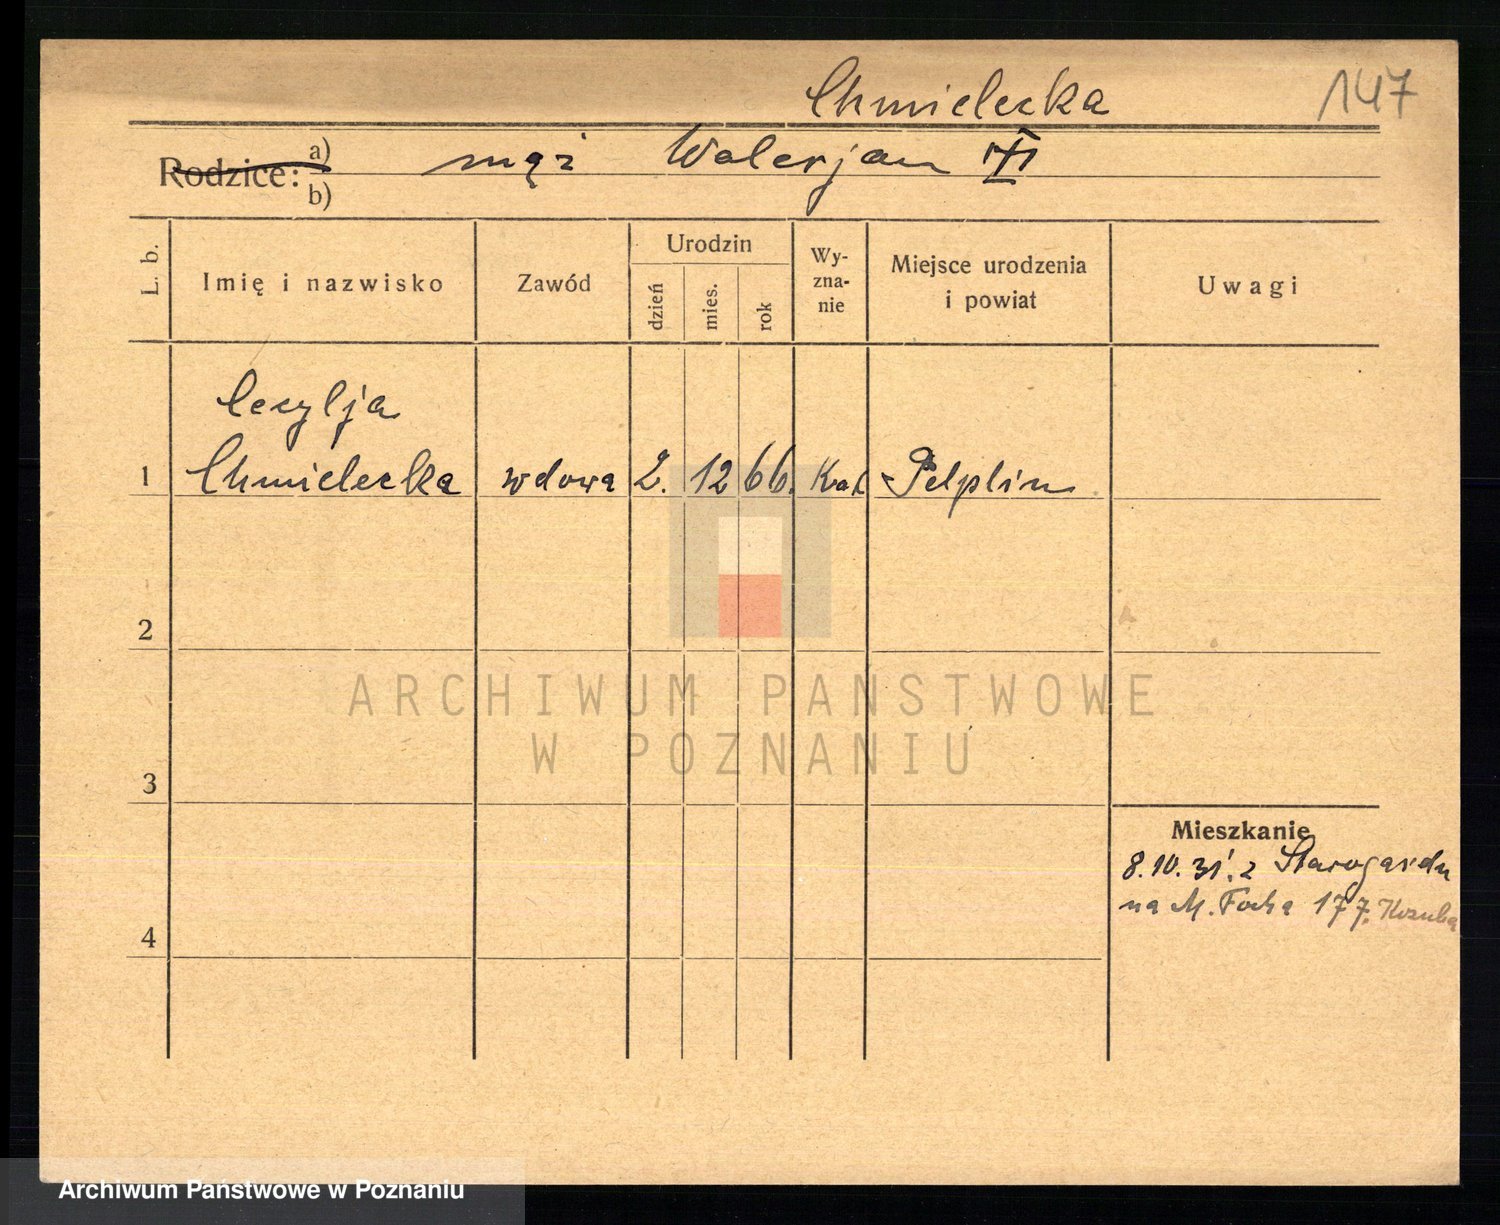 Chmielecka
147
Rodzice: a)
mąż Walerjan
b)
L. b.
Imię i nazwisko
Zawód
Urodzin
dzień
mies.
rok
Wy-
zna-
nie
Miejsce urodzenia
i powiat
Uwagi
Cecylja
1 Chmielecka wdowa 2. 12 66. Kat Pelplin
2
ARCHIWUM PAŃSTWOWE
W POZNANIU
3
Mieszkanie
8.10.31. z Starogardu
na M. Focha 177.
4
Archiwum Państwowe w Poznaniu